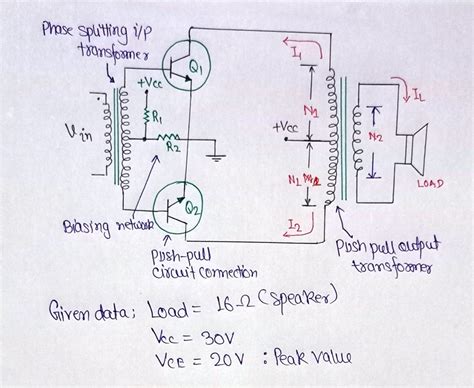 Phase splitting i/p
transformer
Q1
+Vcc
R1
R2
Vin
Biasing network
Q2
Push-pull
circuit connection
I1
N1
+Vcc
N1
I2
N2
IL
LOAD
Push pull output
transformer
Given data; Load = 16Ω (speaker)
Vcc = 30V
VCE = 20V : Peak value